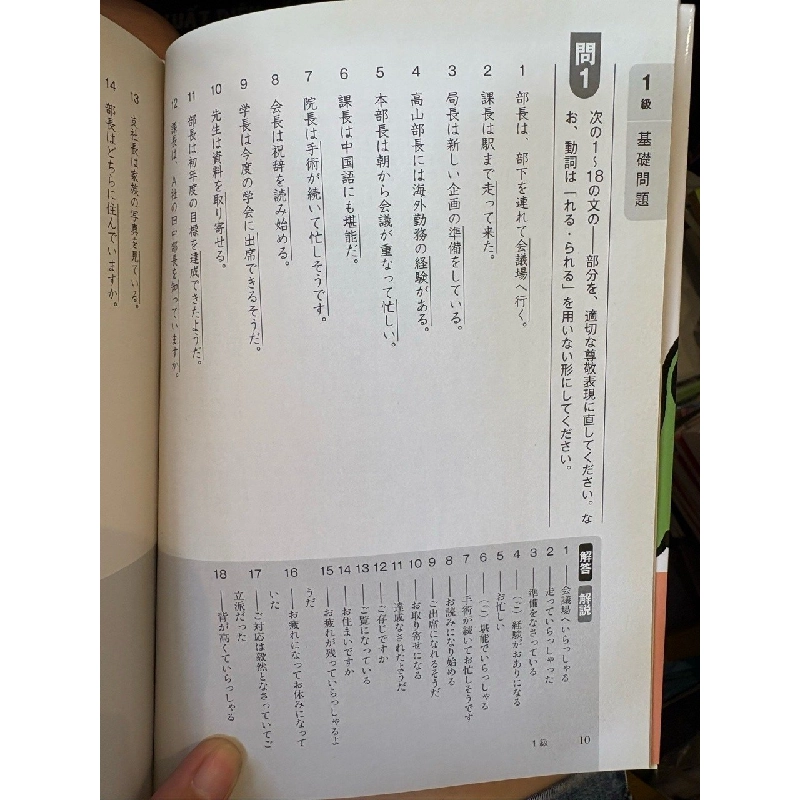 1級 基礎問題
問1
次の1〜18の文の――部分を、適切な尊敬表現に直してください。な
お、動詞は「れる・られる」を用いない形にしてください。
1 部長は、部下を連れて会議場へ行く。
2 課長は駅まで走って来た。
3 局長は新しい企画の準備をしている。
4 高山部長には海外勤務の経験がある。
5 本部長は朝から会議が重なって忙しい。
6 課長は中国語にも堪能だ。
7 院長は手術が続いて忙しそうです。
8 会長は祝辞を読み始める。
9 学長は今度の学会に出席できるそうだ。
10 先生は資料を取り寄せる。
11 部長は初年度の目標を達成できたようだ。
12 課長は、A社の田中部長を知っていますか。
13 支社長は家族の写真を見ている。
14 部長はどちらに住んでいますか。
解答 解説
1――会議場へいらっしゃる
2――走っていらっしゃった
3――準備をなさっている
4――(ご)経験がおありになる
5――お忙しい
6――(ご)堪能でいらっしゃる
7――手術が続いてお忙しそうです
8――お読みになり始める
9――ご出席になれるそうだ
10――お取り寄せになる
11――達成なされたようだ
12――ご存じですか
13――ご覧になっている
14――お住まいですか
15――お疲れが残っていらっしゃるよ
うだ
16――お疲れになってお休みになって
いた
17――ご対応は毅然となさっていてご
立派だった
18――背が高くていらっしゃる
1級
10